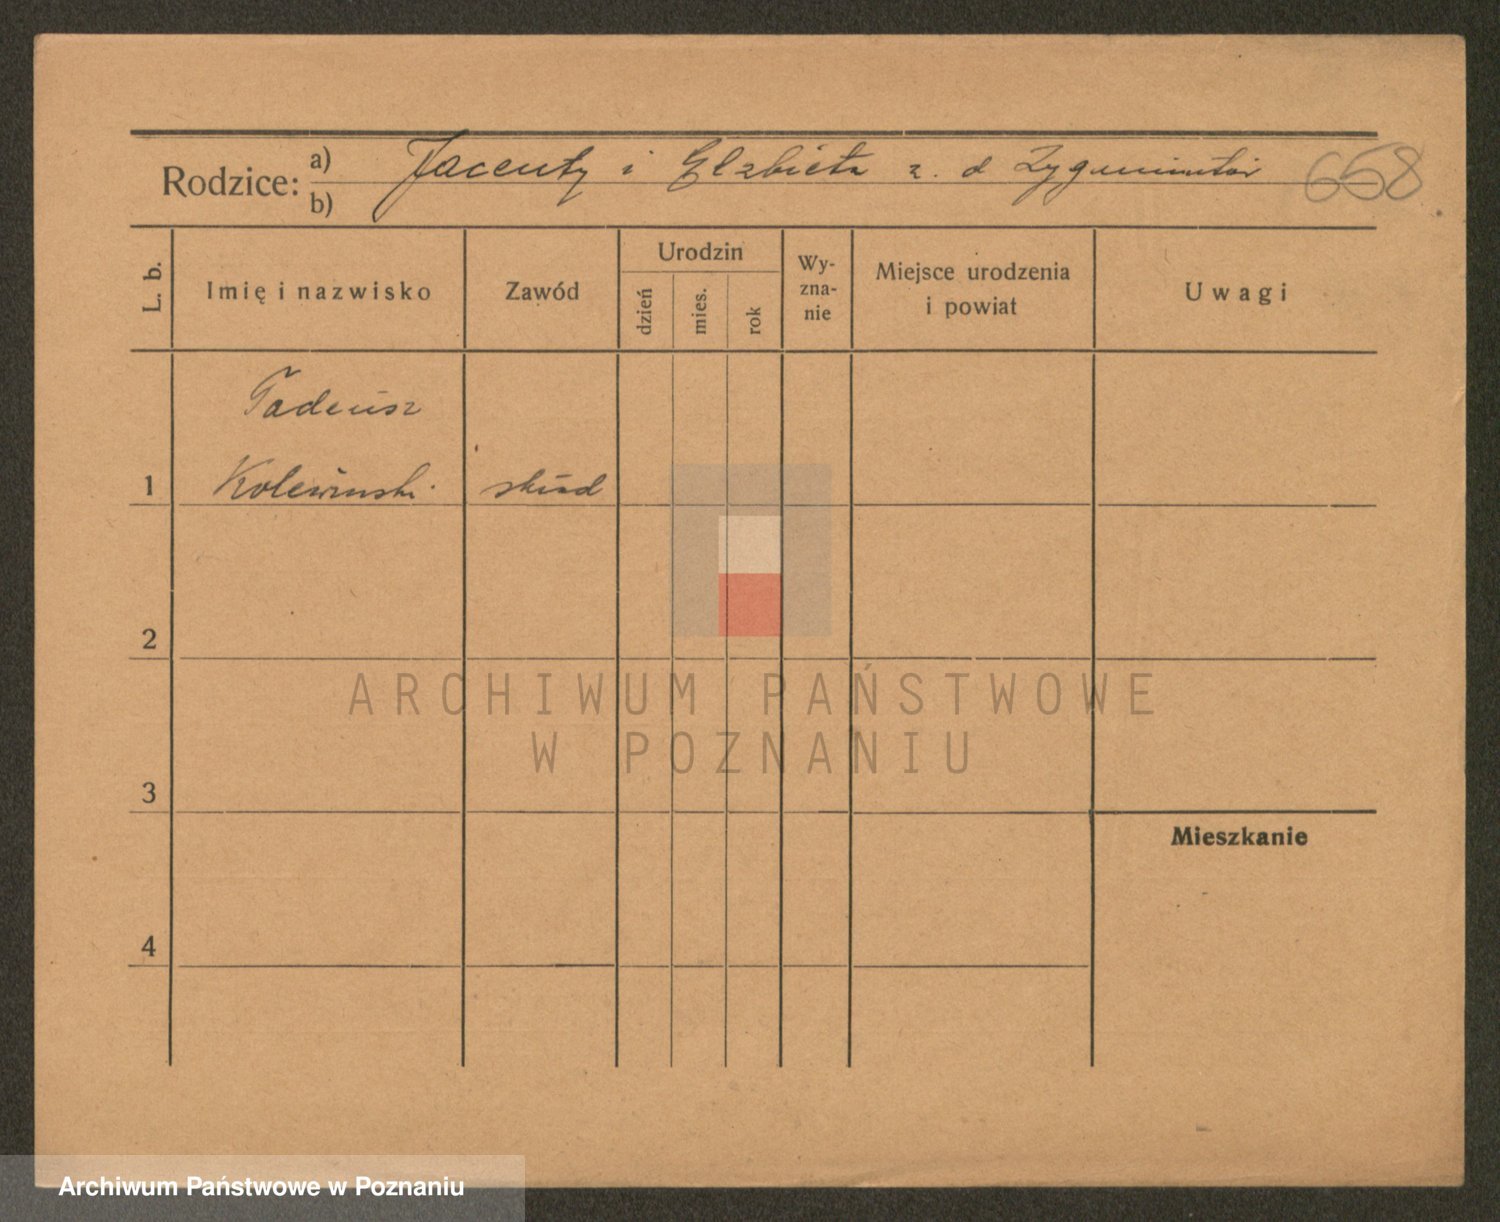 Rodzice: a) Jacenty i Elzbieta z. d Zygmuntów 658
b)
L. b. Imię i nazwisko Zawód Urodzin dzień mies. rok Wy-zna-nie Miejsce urodzenia i powiat Uwagi
Tadeusz
1 Kolewinski
2
3
Mieszkanie
4
ARCHIWUM PAŃSTWOWE
W POZNANIU
Archiwum Państwowe w Poznaniu